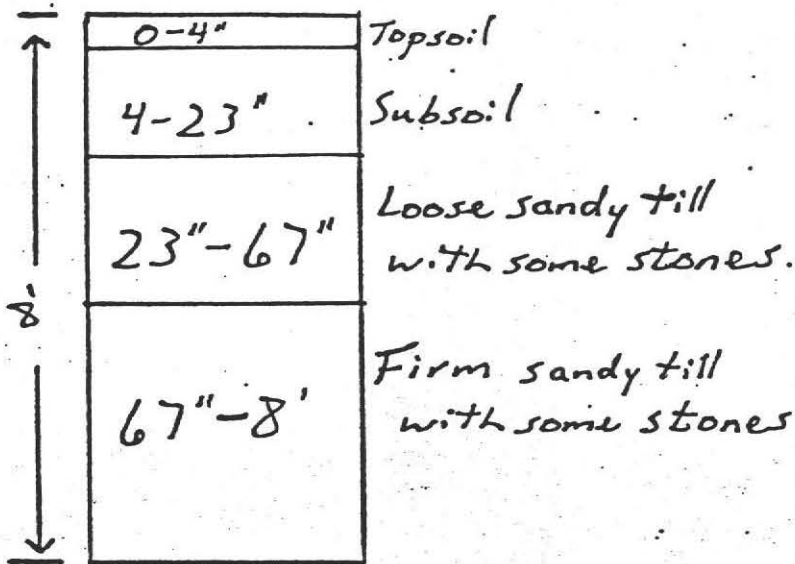 0-4" Topsoil
4-23" Subsoil
23"-67" Loose sandy till
with some stones.
8'
67"-8' Firm sandy till
with some stones